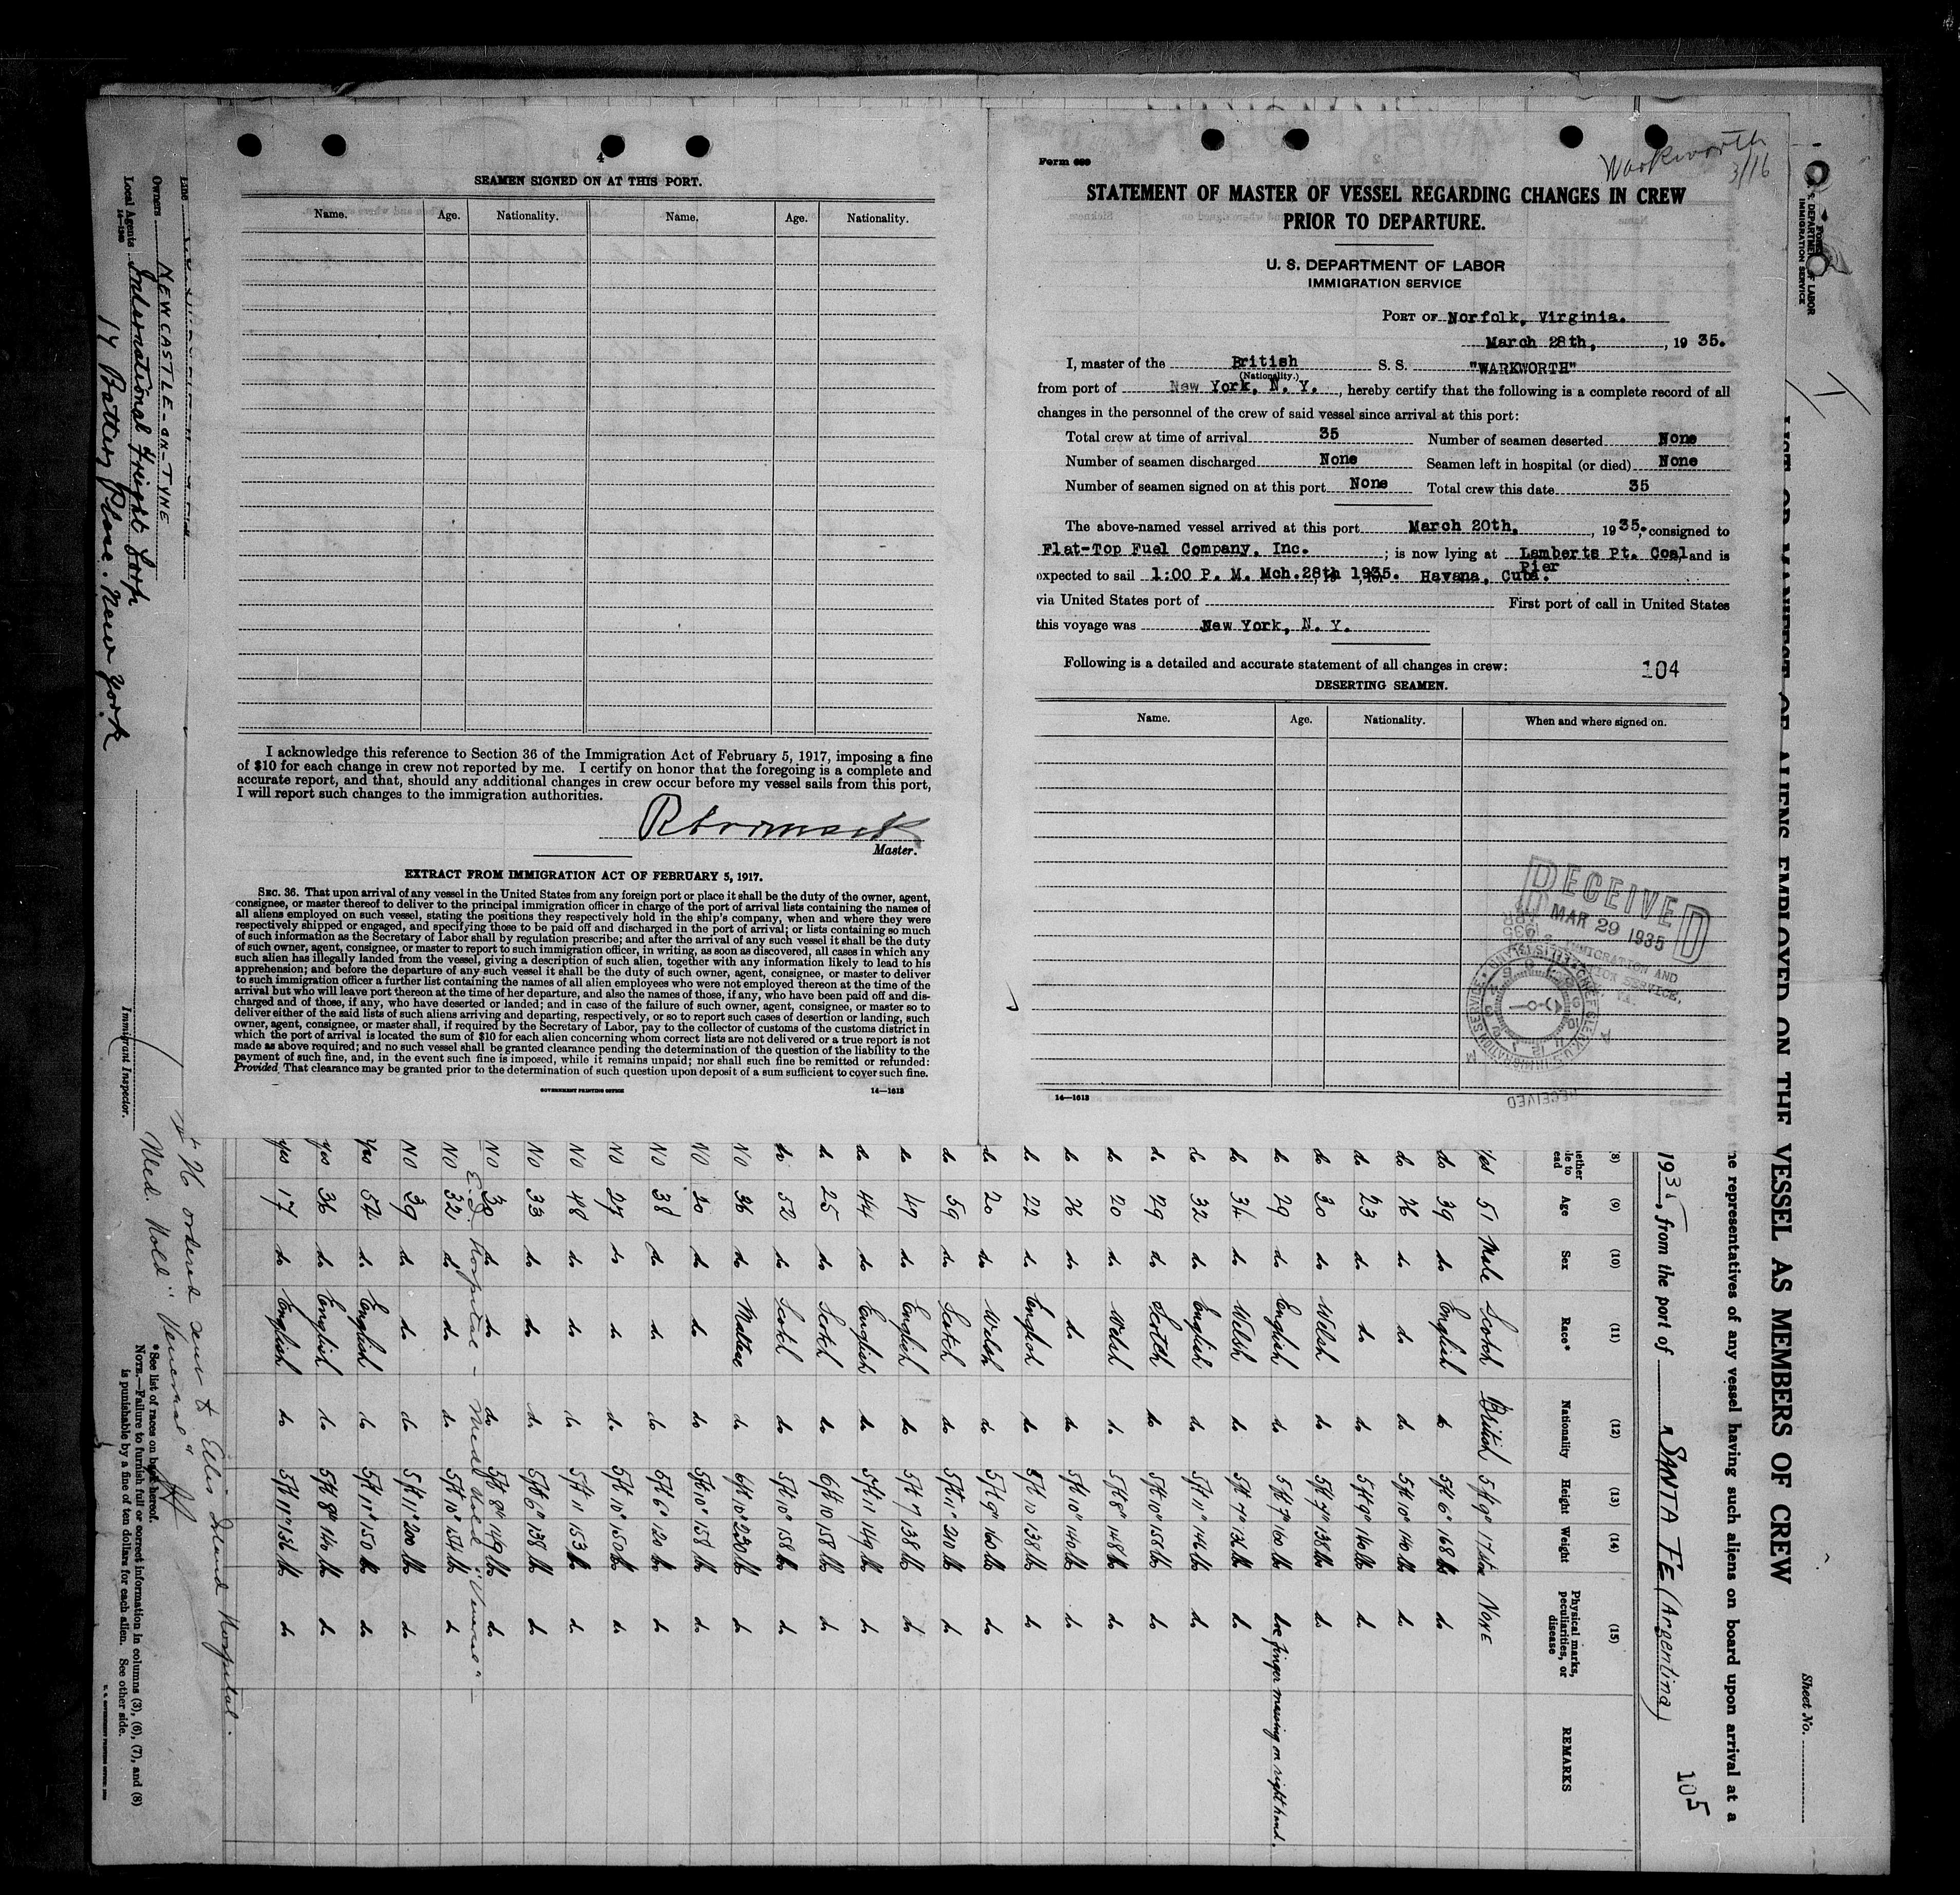 4
SEAMEN SIGNED ON AT THIS PORT.
Name. Age. Nationality. Name. Age. Nationality.
I acknowledge this reference to Section 36 of the Immigration Act of February 5, 1917, imposing a fine
of $10 for each change in crew not reported by me. I certify on honor that the foregoing is a complete and
accurate report, and that, should any additional changes in crew occur before my vessel sails from this port,
I will report such changes to the immigration authorities.
Master.
EXTRACT FROM IMMIGRATION ACT OF FEBRUARY 5, 1917.
SEC. 36. That upon arrival of any vessel in the United States from any foreign port or place it shall be the duty of the owner, agent,
consignee, or master thereof to deliver to the principal immigration officer in charge of the port of arrival lists containing the names of
all aliens employed on such vessel, stating the positions they respectively hold in the ship's company, when and where they were
respectively shipped or engaged, and specifying those to be paid off and discharged in the port of arrival; or lists containing so much
of such information as the Secretary of Labor shall by regulation prescribe; and after the arrival of any such vessel it shall be the duty
of such owner, agent, consignee, or master to report to such immigration officer, in writing, as soon as discovered, all cases in which any
such alien has illegally landed from the vessel, giving a description of such alien, together with any information likely to lead to his
apprehension; and before the departure of any such vessel it shall be the duty of such owner, agent, consignee, or master to deliver
to such immigration officer a further list containing the names of all alien employees who were not employed thereon at the time of the
arrival but who will leave port thereon at the time of her departure, and also the names of those, if any, who have been paid off and dis-
charged and of those, if any, who have deserted or landed; and in case of the failure of such owner, agent, consignee, or master so to
deliver either of the said lists of such aliens arriving and departing, respectively, or so to report such cases of desertion or landing, such
owner, agent, consignee, or master shall, if required by the Secretary of Labor, pay to the collector of customs of the customs district in
which the port of arrival is located the sum of $10 for each alien concerning whom correct lists are not delivered or a true report is not
made as above required; and no such vessel shall be granted clearance pending the determination of the question of the liability to the
payment of such fine, and, in the event such fine is imposed, while it remains unpaid; nor shall such fine be remitted or refunded:
Provided That clearance may be granted prior to the determination of such question upon deposit of a sum sufficient to cover such fine.
GOVERNMENT PRINTING OFFICE 14—1613
Warkworth
3/16
Form 689
STATEMENT OF MASTER OF VESSEL REGARDING CHANGES IN CREW
PRIOR TO DEPARTURE.
U. S. DEPARTMENT OF LABOR
IMMIGRATION SERVICE
PORT OF Norfolk, Virginia.
March 28th, , 19 35.
I, master of the British S. S. "WARKWORTH"
(Nationality.)
from port of New York, N. Y. , hereby certify that the following is a complete record of all
changes in the personnel of the crew of said vessel since arrival at this port:
Total crew at time of arrival 35 Number of seamen deserted None
Number of seamen discharged None Seamen left in hospital (or died) None
Number of seamen signed on at this port None Total crew this date 35
The above-named vessel arrived at this port March 20th, , 19 35, consigned to
Flat-Top Fuel Company, Inc. ; is now lying at Lamberts Pt. Coal and is
Pier
expected to sail 1:00 P. M. Mch. 28th 1935. Havana, Cuba.
via United States port of First port of call in United States
this voyage was New York, N. Y.
Following is a detailed and accurate statement of all changes in crew:
104
DESERTING SEAMEN.
Name. Age. Nationality. When and where signed on.
RECEIVED
MAR 29 1935
14—1613
AS MEMBERS OF CREW
ALIENS EMPLOYED ON THE VESSEL
Sheet No.
the representatives of any vessel having such aliens on board upon arrival at a
, from the port of SANTA FE (Argentina)
105
(8) (9) (10) (11) (12) (13) (14) (15)
Age Sex Race* Nationality Height Weight Physical marks, peculiarities, or disease REMARKS
Yes 51 Male Scotch British 5ft 9" 17 stone NONE
do 39 do English do 5ft 6" 168 lbs do
do 26 do do do 5ft 10" 140 lbs do
do 23 do do do 5ft 9" 140 lbs do
do 30 do Welsh do 5ft 7" 138 lbs do
do 29 do English do 5ft 7" 160 lbs finger missing on right hand.
do 34 do Welsh do 5ft 7" 136 lbs do
do 32 do English do 5ft 11" 146 lbs do
do 29 do Scotch do 5ft 10" 158 lbs do
do 20 do Welsh do 5ft 8" 148 lbs do
do 26 do do do 5ft 10" 140 lbs do
do 22 do English do 5ft 10 138 lbs do
do 20 do Welsh do 5ft 9" 160 lbs do
do 59 do Scotch do 5ft 11" 210 lbs do
do 49 do English do 5ft 7 138 lbs do
do 44 do English do 5ft 11 149 lbs do
do 25 do Scotch do 6ft 10 158 lbs do
do 52 do Scotch do 5ft 10" 158 lbs do
NO 36 do Maltese do 6ft 10" 230 lbs do
NO 30 do do do 5ft 10" 158 lbs do
NO 38 do do do 5ft 6" 120 lbs do
NO 27 do do do 5ft 10" 150 lbs do
NO 48 do do do 5ft 11 153 lbs do
NO 33 do do do 5ft 6" 138 lbs do
NO 30 do do do 5ft 8" 149 lbs do
Hospital - Med held "Venereal" -
NO 32 do do do 5ft 10" 154 lbs do
NO 39 do do do 5ft 11" 200 lbs do
Yes 54 do English do 5ft 11" 150 lbs do
Yes 36 do English do 5ft 8" 140 lbs do
Yes 17 do English do 5ft 11" 136 lbs do
ordered sent to Ellis Island Hospital.
Med. Hold "Venereal"
Line
Owners NEWCASTLE-ON-TYNE
Local Agents International Freight Corp
14—1240
17 Battery Place. New York
Immigrant Inspector.
*See list of races on back hereof.
NOTE.—Failure to furnish full or correct information in columns (3), (6), (7), and (8)
is punishable by a fine of ten dollars for each alien. See other side.